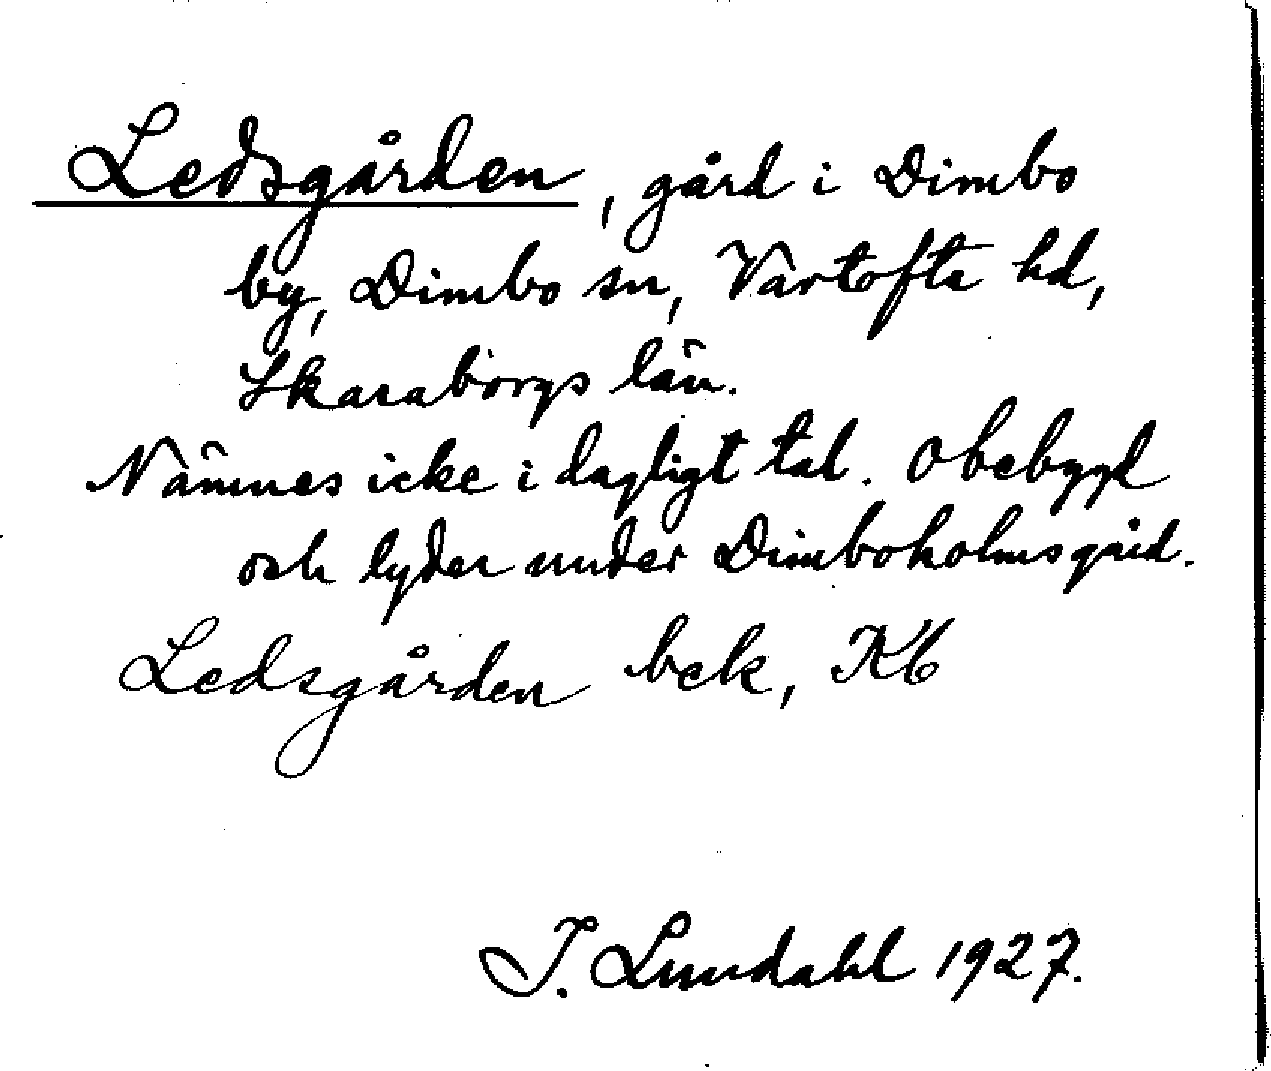 Ledsgården, gård i Dimbo
by, Dimbo sn, Vartofta hd,
Skaraborgs län.
Nämnes icke i dagligt tal. Obebygd
och lyder under Dimboholmsgård.
Ledsgården bek, Kb
I. Lundahl 1927.